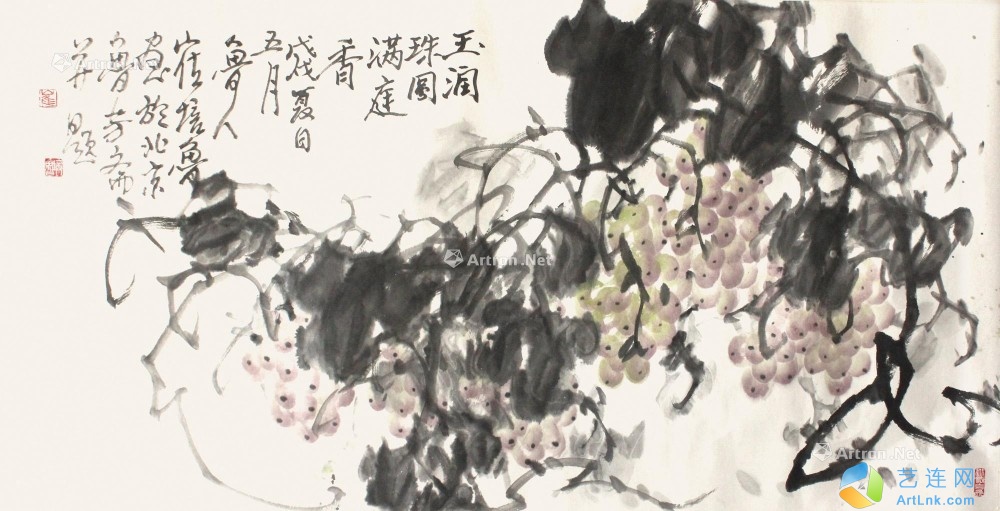 玉润
珠圆
满庭
香
戊戌夏日
五月
鲁人
崔培鲁
写於北京
鲁芳斋
并题
Artron.Net
Artron.Net
Artron.Net
Artron.Net
艺连网
ArtLnk.com